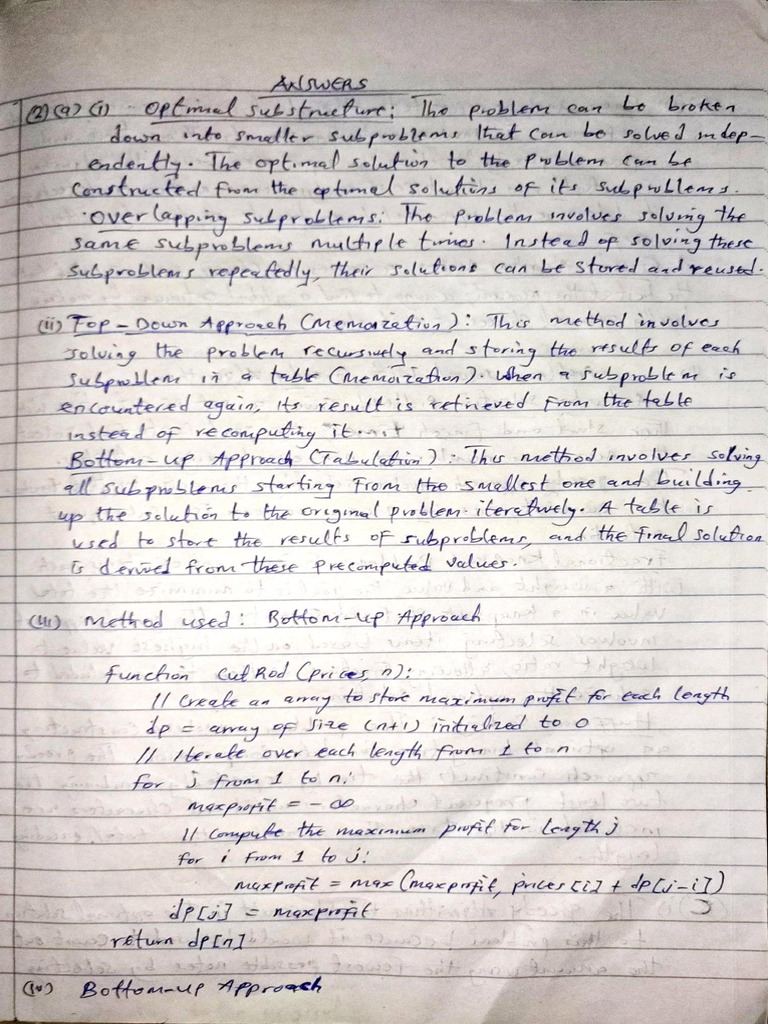 ANSWERS
(2)(a)(i) Optimal substructure: The problem can be broken
down into smaller subproblems that can be solved indep-
endently. The optimal solution to the problem can be
constructed from the optimal solutions of its subproblems.
·Overlapping subproblems: The problem involves solving the
same subproblems multiple times. Instead of solving these
subproblems repeatedly, their solutions can be stored and reused.
(ii) Top-Down Approach (Memoization): This method involves
solving the problem recursively and storing the results of each
subproblem in a table (memoization). When a subproblem is
encountered again, its result is retrieved from the table
instead of recomputing it.
Bottom-up Approach (Tabulation): This method involves solving
all subproblems starting from the smallest one and building
up the solution to the original problem iteratively. A table is
used to store the results of subproblems, and the final solution
is derived from these precomputed values.
(iii) Method used: Bottom-up Approach
function cutRod(prices, n):
// Create an array to store maximum profit for each length
dp = array of size (n+1) initialized to 0
// Iterate over each length from 1 to n
for j from 1 to n:
maxprofit = -∞
// Compute the maximum profit for length j
for i from 1 to j:
maxprofit = max(maxprofit, prices[i] + dp[j-i])
dp[j] = maxprofit
return dp[n]
(iv) Bottom-up Approach